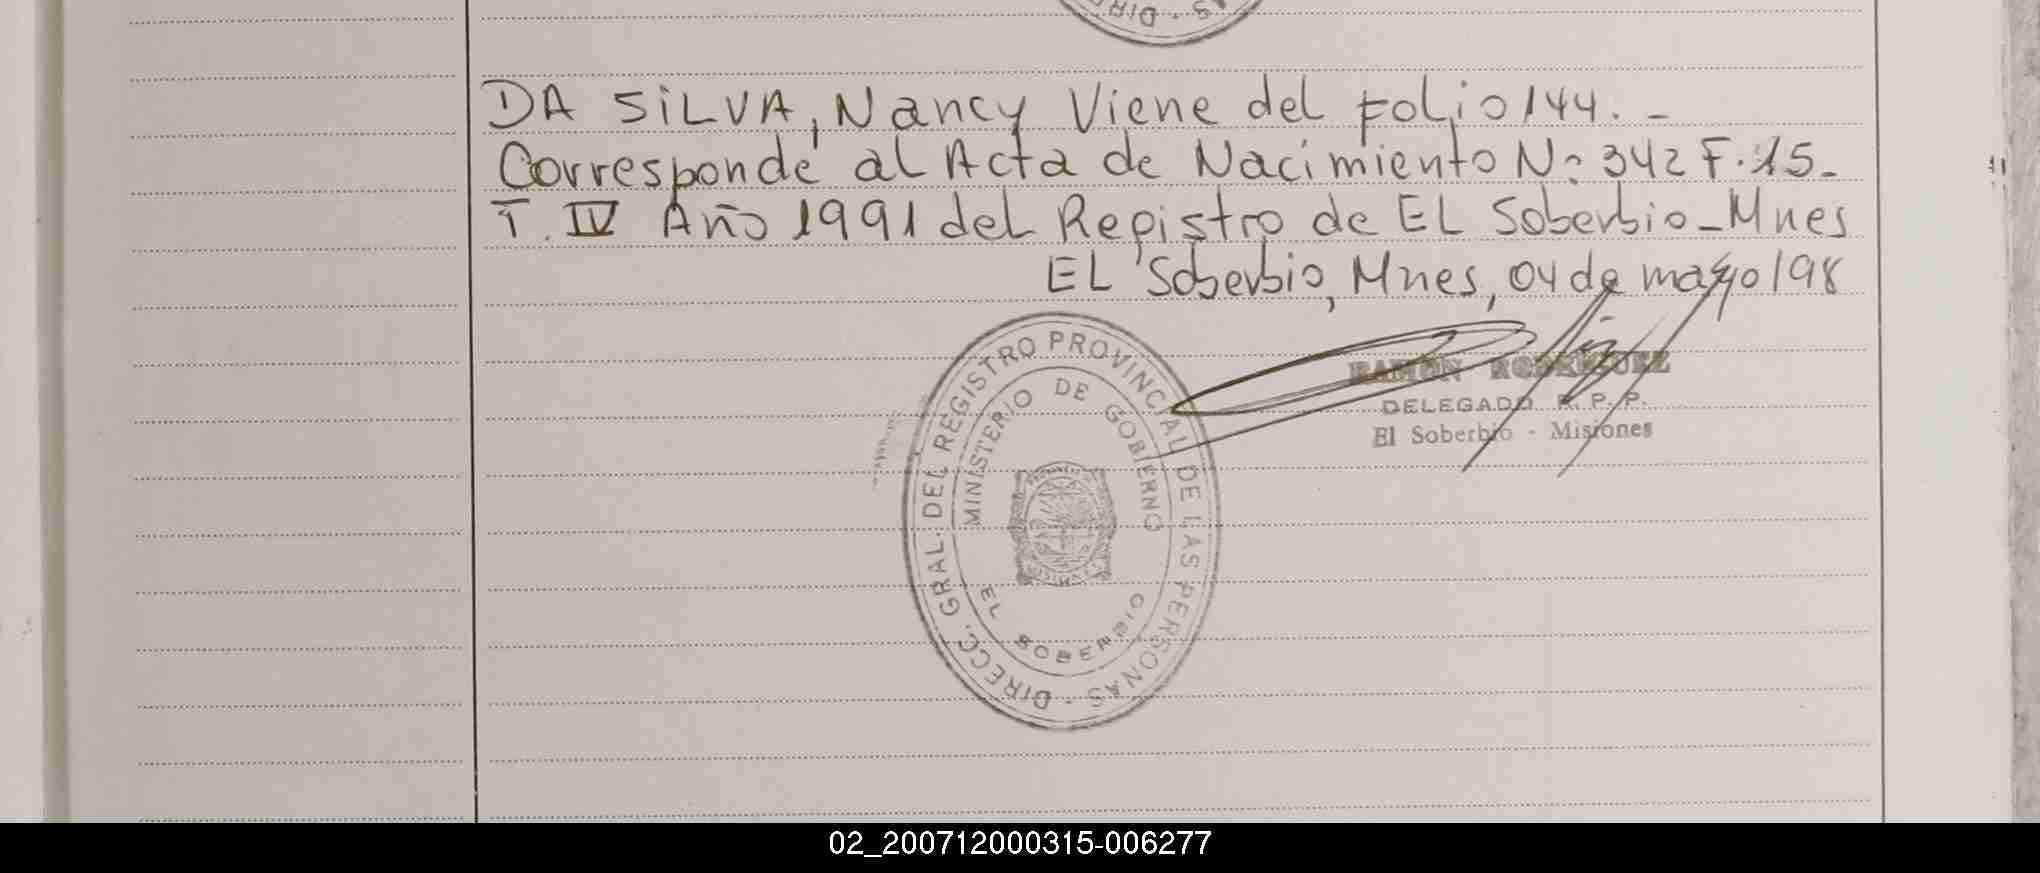 DA SiLVA, Nancy Viene del folio 144. -
Corresponde al Acta de Nacimiento Nº 342 F. 15-
T. IV Año 1991 del Registro de EL Soberbio - Mnes
EL Soberbio, Mnes, 04 de mayo 198
RAMON RODRIGUEZ
DELEGADO R. P. P.
El Soberbio - Misiones
DIRECC. GRAL. DEL REGISTRO PROVINCIAL DE LAS PERSONAS -
MINISTERIO DE GOBIERNO
EL SOBERBIO
02_200712000315-006277